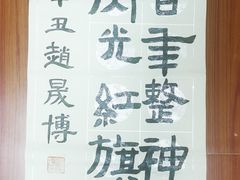 年整神
光紅旗
丑趙晟博